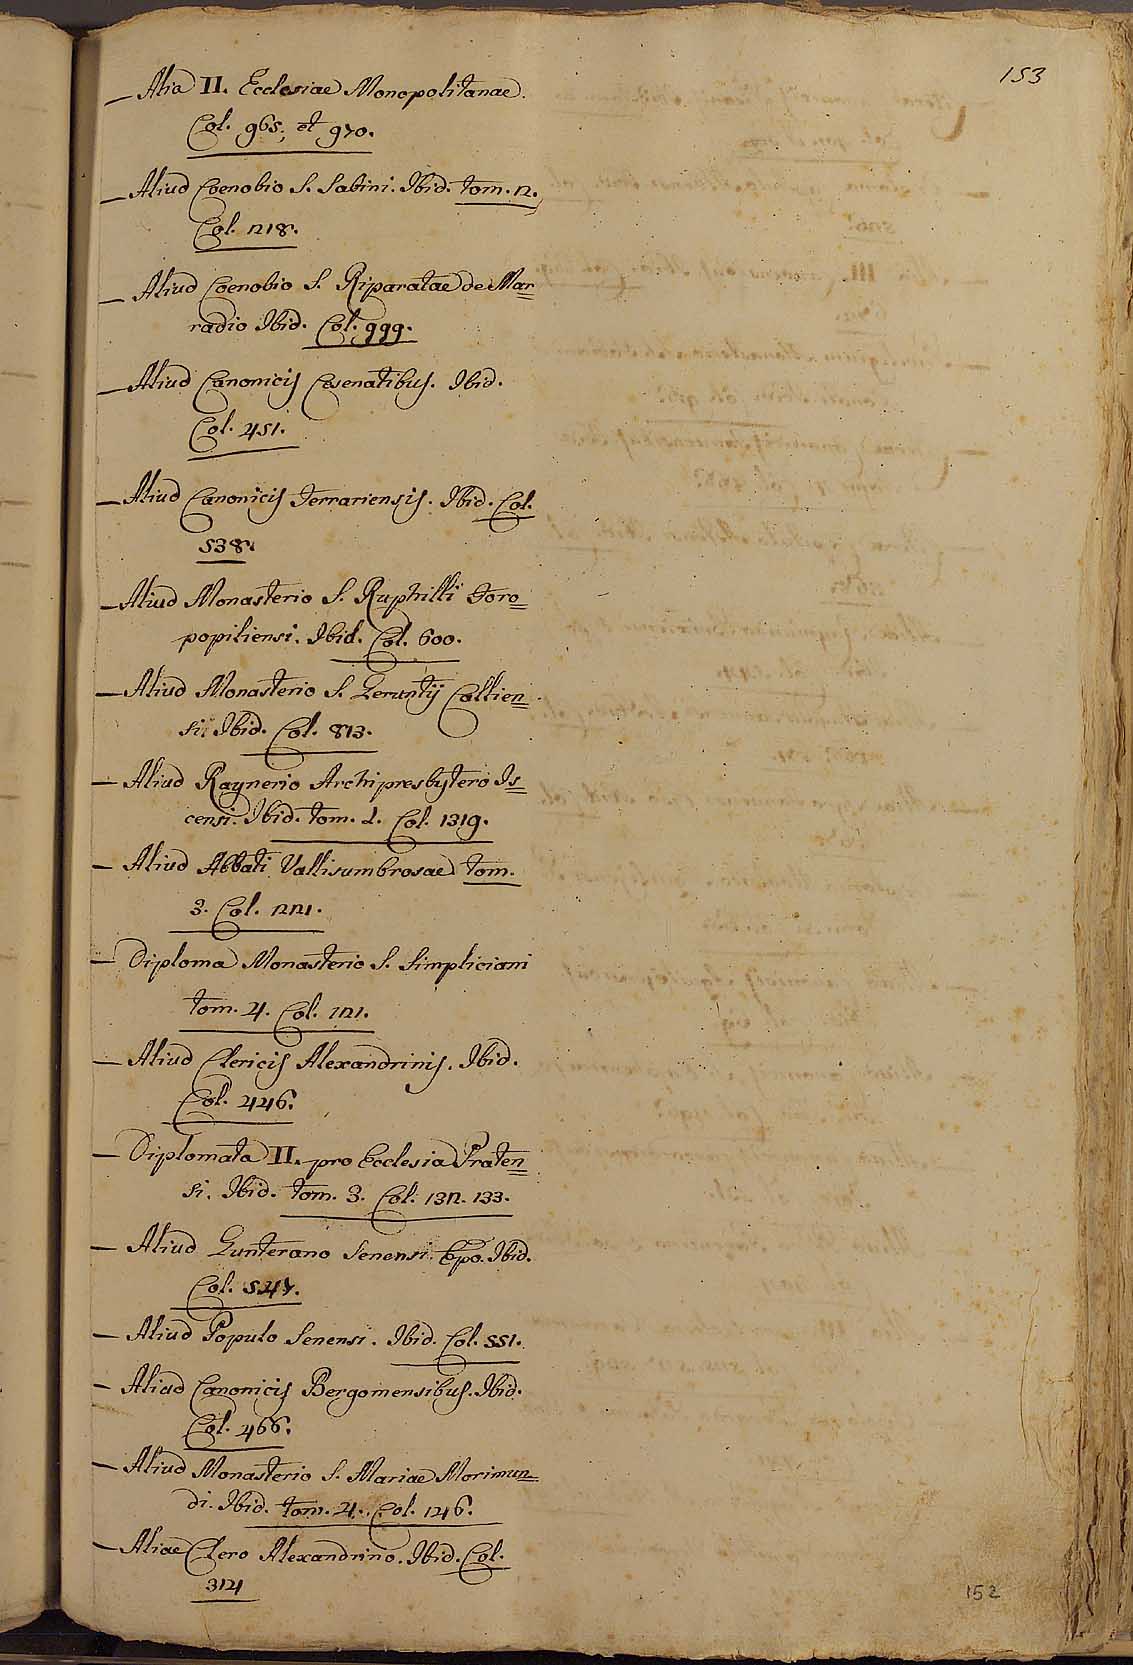 153
— Alia II. Ecclesiae Monopolitanae.
Col. 965, et 970.
— Aliud Coenobio S. Sabini. Ibid. tom. 2.
Col. 1218.
— Aliud Coenobio S. Riparatae de Mar=
radio Ibid. Col. 999.
— Aliud Canonicis Cesenatibus. Ibid.
Col. 451.
— Aliud Canonicis Ferrariensis. Ibid. Col.
538.
— Aliud Monasterio S. Ruphilli Foro=
popiliensi. Ibid. Col. 600.
— Aliud Monasterio S. Geruntij Callien=
si. Ibid. Col. 813.
— Aliud Raynerio Archipresbytero Is=
censi. Ibid. tom. 1. Col. 1319.
— Aliud Abbati Vallisumbrosae tom.
3. Col. 1221.
— Diploma Monasterio S. Simpliciani
tom. 4. Col. 121.
— Aliud Clericis Alexandrinis. Ibid.
Col. 446.
— Diplomata II. pro Ecclesia Praten=
si. Ibid. tom. 3. Col. 132. 133.
— Aliud Gunterano Senensi Epo. Ibid.
Col. 547.
— Aliud Populo Senensi. Ibid. Col. 551.
— Aliud Canonicis Bergomensibus. Ibid.
Col. 466.
— Aliud Monasterio S. Mariae Morimun=
di. Ibid. tom. 4. Col. 146.
— Aliae Clero Alexandrino. Ibid. Col.
314
152